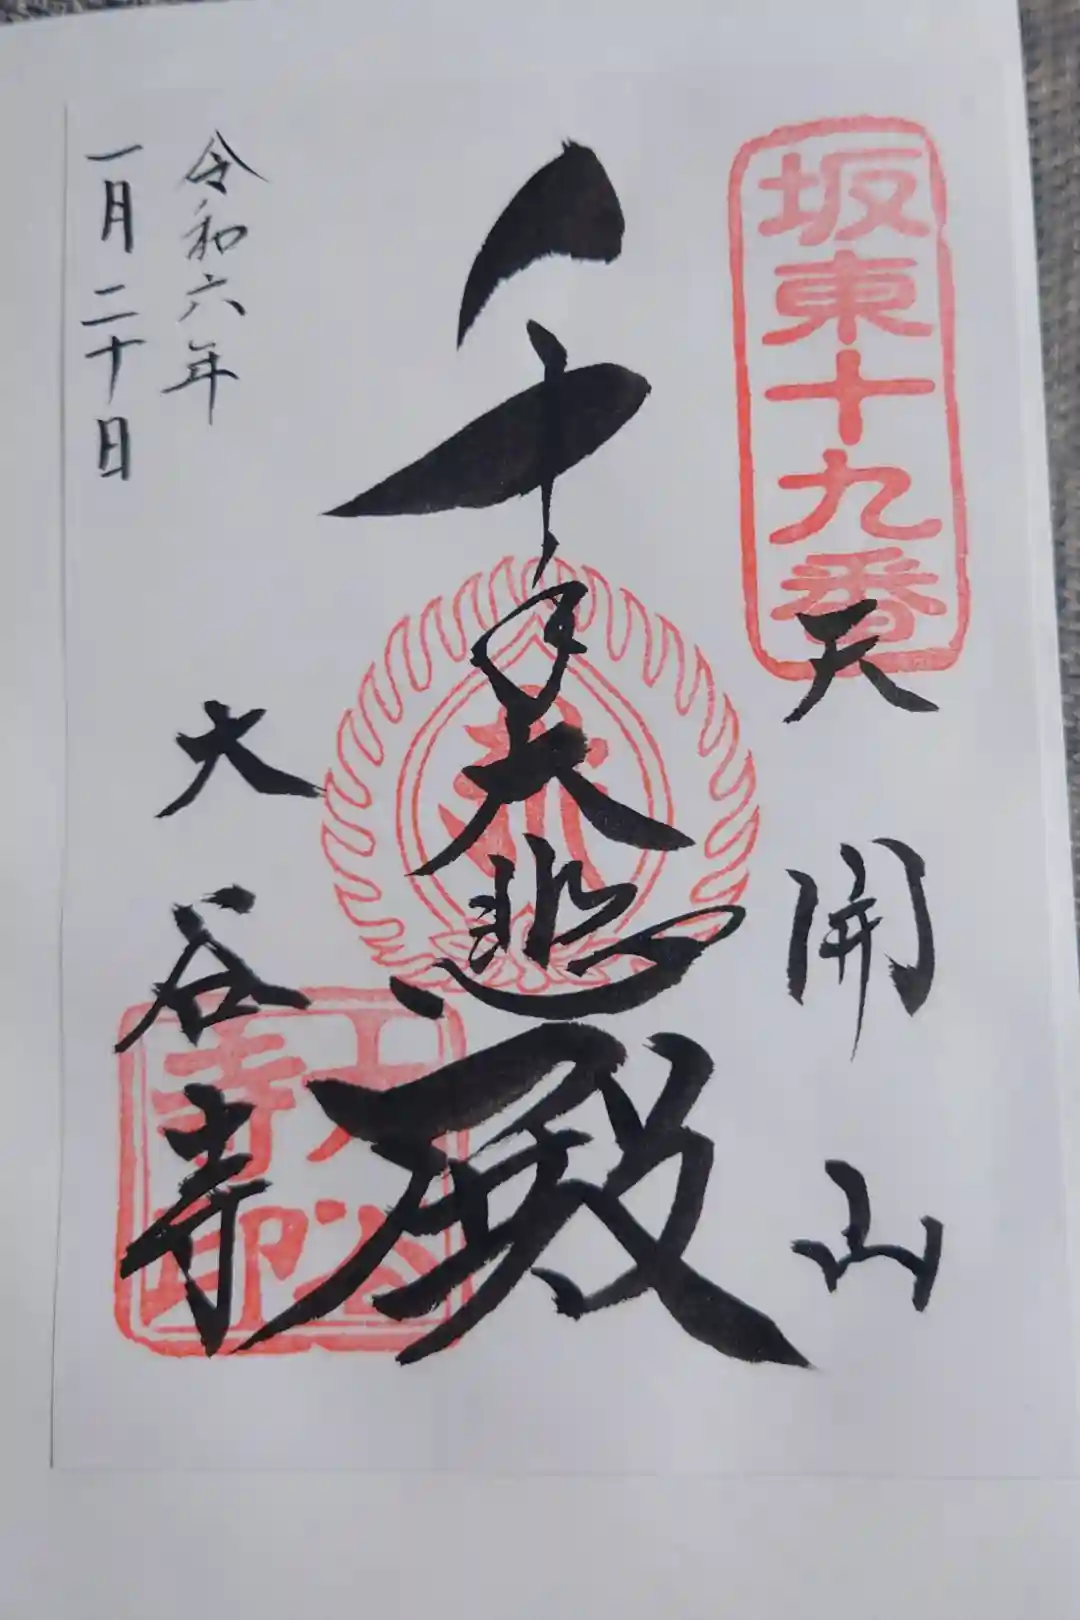 坂東十九番
天開山
千手大悲殿
大谷寺
大谷寺印
令和六年
一月二十日